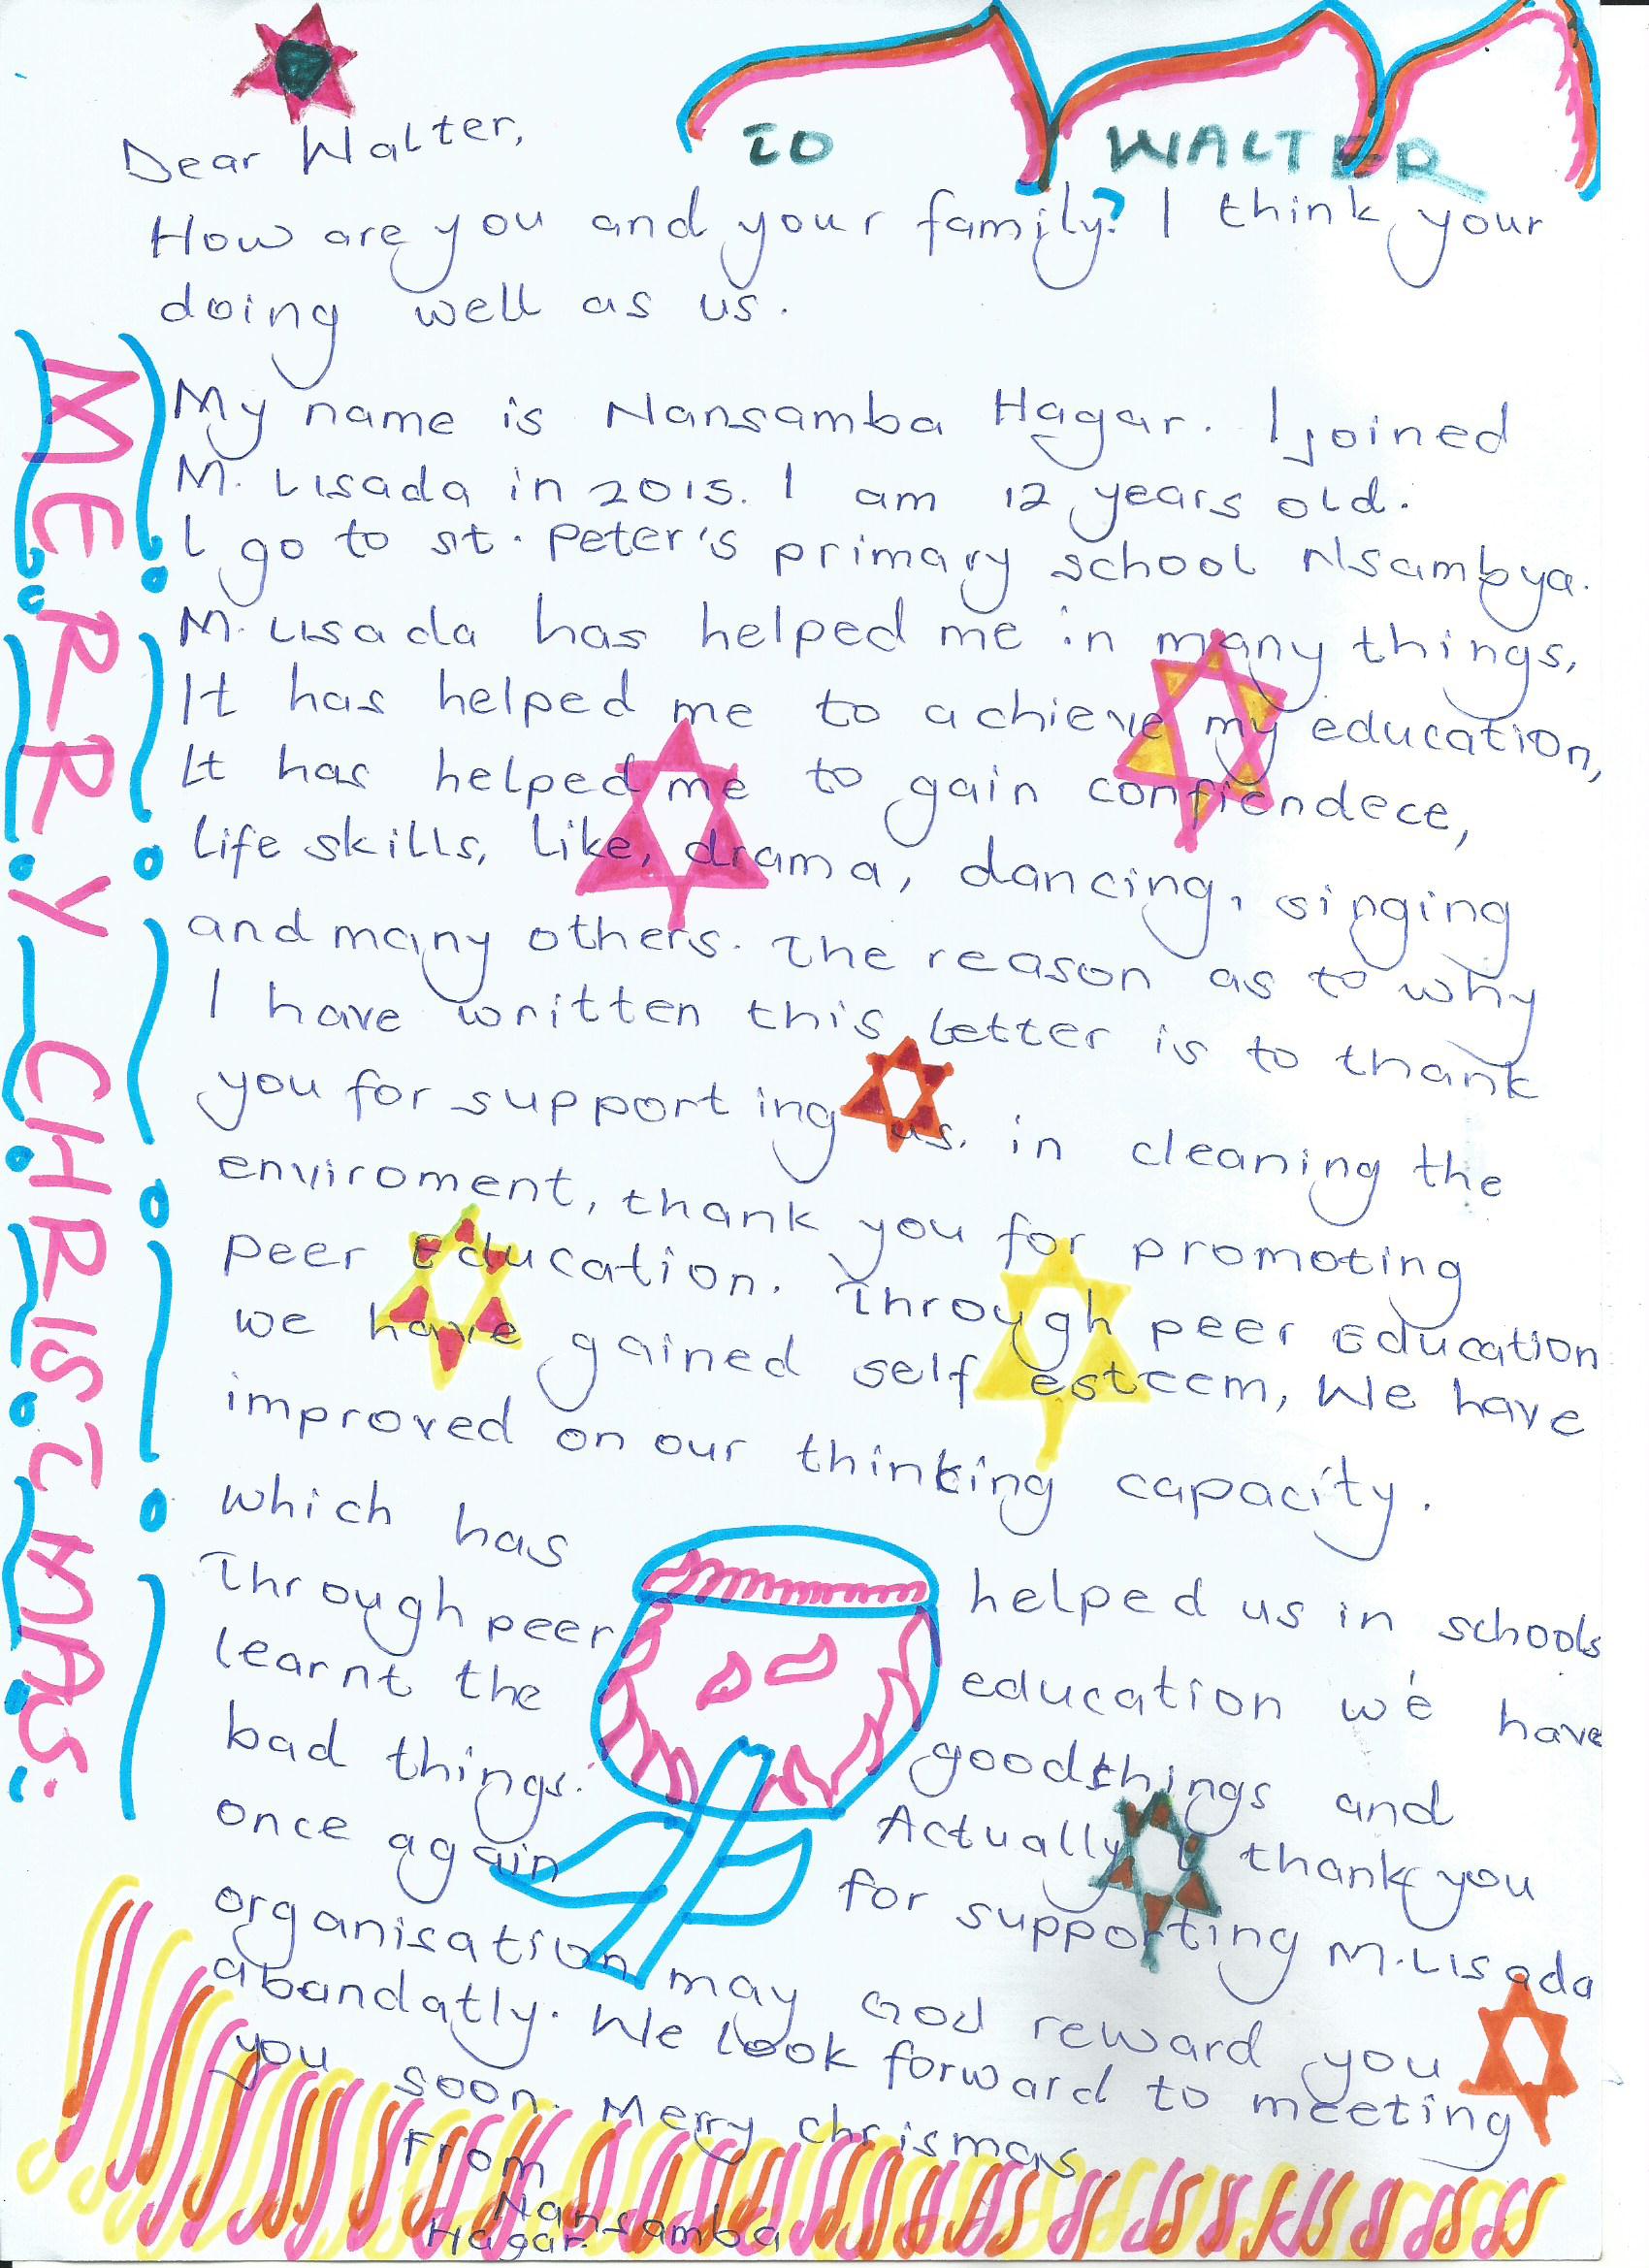 TO WALTER
Dear Walter,
How are you and your family? I think your
doing well as us.
MERRY CHRISTMAS.
My name is Nansamba Hagar. I joined
M. Lisada in 2015. I am 12 years old.
I go to st. Peter's primary school Nsambya.
M. Lisada has helped me in many things,
It has helped me to achieve my education,
It has helped me to gain confiendece,
life skills, like, drama, dancing, singing
and many others. The reason as to why
I have written this letter is to thank
you for supporting us. in cleaning the
enviroment, thank you for promoting
peer Education. Through peer Education
we have gained self esteem, We have
improved on our thinking capacity.
which has helped us in schools
Through peer education we have
learnt the good things and
bad things. Actually I thank you
once again for supporting M. Lisada
organisation may God reward you
abandatly. We look forward to meeting
you soon. Merry chrismas
From
Nansamba
Hagar.